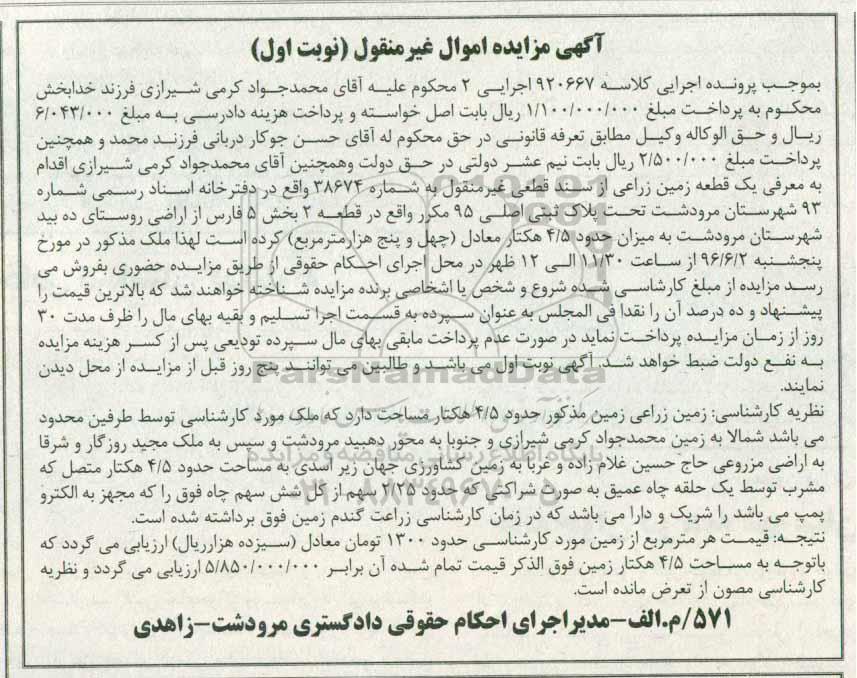 آگهی مزایده اموال غیرمنقول (نوبت اول)
بموجب پرونده اجرایی کلاسه ۹۲۰۶۶۷ اجرایی ۲ محکوم علیه آقای محمدجواد کرمی شیرازی فرزند خدابخش
محکوم به پرداخت مبلغ ۱/۱۰۰/۰۰۰/۰۰۰ ریال بابت اصل خواسته و پرداخت هزینه دادرسی به مبلغ ۶/۰۴۳/۰۰۰
ریال و حق الوکاله وکیل مطابق تعرفه قانونی در حق محکوم له آقای حسن جوکار دربانی فرزند محمد و همچنین
پرداخت مبلغ ۲/۵۰۰/۰۰۰ ریال بابت نیم عشر دولتی در حق دولت وهمچنین آقای محمدجواد کرمی شیرازی اقدام
به معرفی یک قطعه زمین زراعی از سند قطعی غیرمنقول به شماره ۳۸۶۷۴ واقع در دفترخانه اسناد رسمی شماره
۹۳ شهرستان مرودشت تحت پلاک ثبتی اصلی ۹۵ مکرر واقع در قطعه ۲ بخش ۵ فارس از اراضی روستای ده بید
شهرستان مرودشت به میزان حدود ۴/۵ هکتار معادل (چهل و پنج هزارمترمربع) کرده است لهذا ملک مذکور در مورخ
پنجشنبه ۹۶/۶/۲ از ساعت ۱۱/۳۰ الی ۱۲ ظهر در محل اجرای احکام حقوقی از طریق مزایده حضوری بفروش می
رسد مزایده از مبلغ کارشناسی شده شروع و شخص یا اشخاصی برنده مزایده شناخته خواهند شد که بالاترین قیمت را
پیشنهاد و ده درصد آن را نقدا فی المجلس به عنوان سپرده به قسمت اجرا تسلیم و بقیه بهای مال را ظرف مدت ۳۰
روز از زمان مزایده پرداخت نماید در صورت عدم پرداخت مابقی بهای مال سپرده تودیعی پس از کسر هزینه مزایده
به نفع دولت ضبط خواهد شد. آگهی نوبت اول می باشد و طالبین می توانند پنج روز قبل از مزایده از محل دیدن
نمایند.
نظریه کارشناسی: زمین زراعی زمین مذکور حدود ۴/۵ هکتار مساحت دارد که ملک مورد کارشناسی توسط طرفین محدود
می باشد شمالا به زمین محمدجواد کرمی شیرازی و جنوبا به محور دهبید مرودشت و سپس به ملک مجید روزگار و شرقا
به اراضی مزروعی حاج حسین غلام زاده و غربا به زمین کشاورزی جهان زیر اسدی به مساحت حدود ۴/۵ هکتار متصل که
مشرب توسط یک حلقه چاه عمیق به صورت شراکتی که حدود ۱/۲۵ سهم از کل شش سهم چاه فوق را که مجهز به الکترو
پمپ می باشد را شریک و دارا می باشد که در زمان کارشناسی زراعت گندم زمین فوق برداشته شده است.
نتیجه: قیمت هر مترمربع از زمین مورد کارشناسی حدود ۱۳۰۰ تومان معادل (سیزده هزارریال) ارزیابی می گردد که
باتوجه به مساحت ۴/۵ هکتار زمین فوق الذکر قیمت تمام شده آن برابر ۵/۸۵۰/۰۰۰/۰۰۰ ارزیابی می گردد و نظریه
کارشناسی مصون از تعرض مانده است.
۵۷۱/م.الف-مدیراجرای احکام حقوقی دادگستری مرودشت-زاهدی
ParsNamadData
پایگاه اطلاع رسانی مناقصه و مزایده
۰۲۱-۸۸۳۴۹۶۷۰-۵